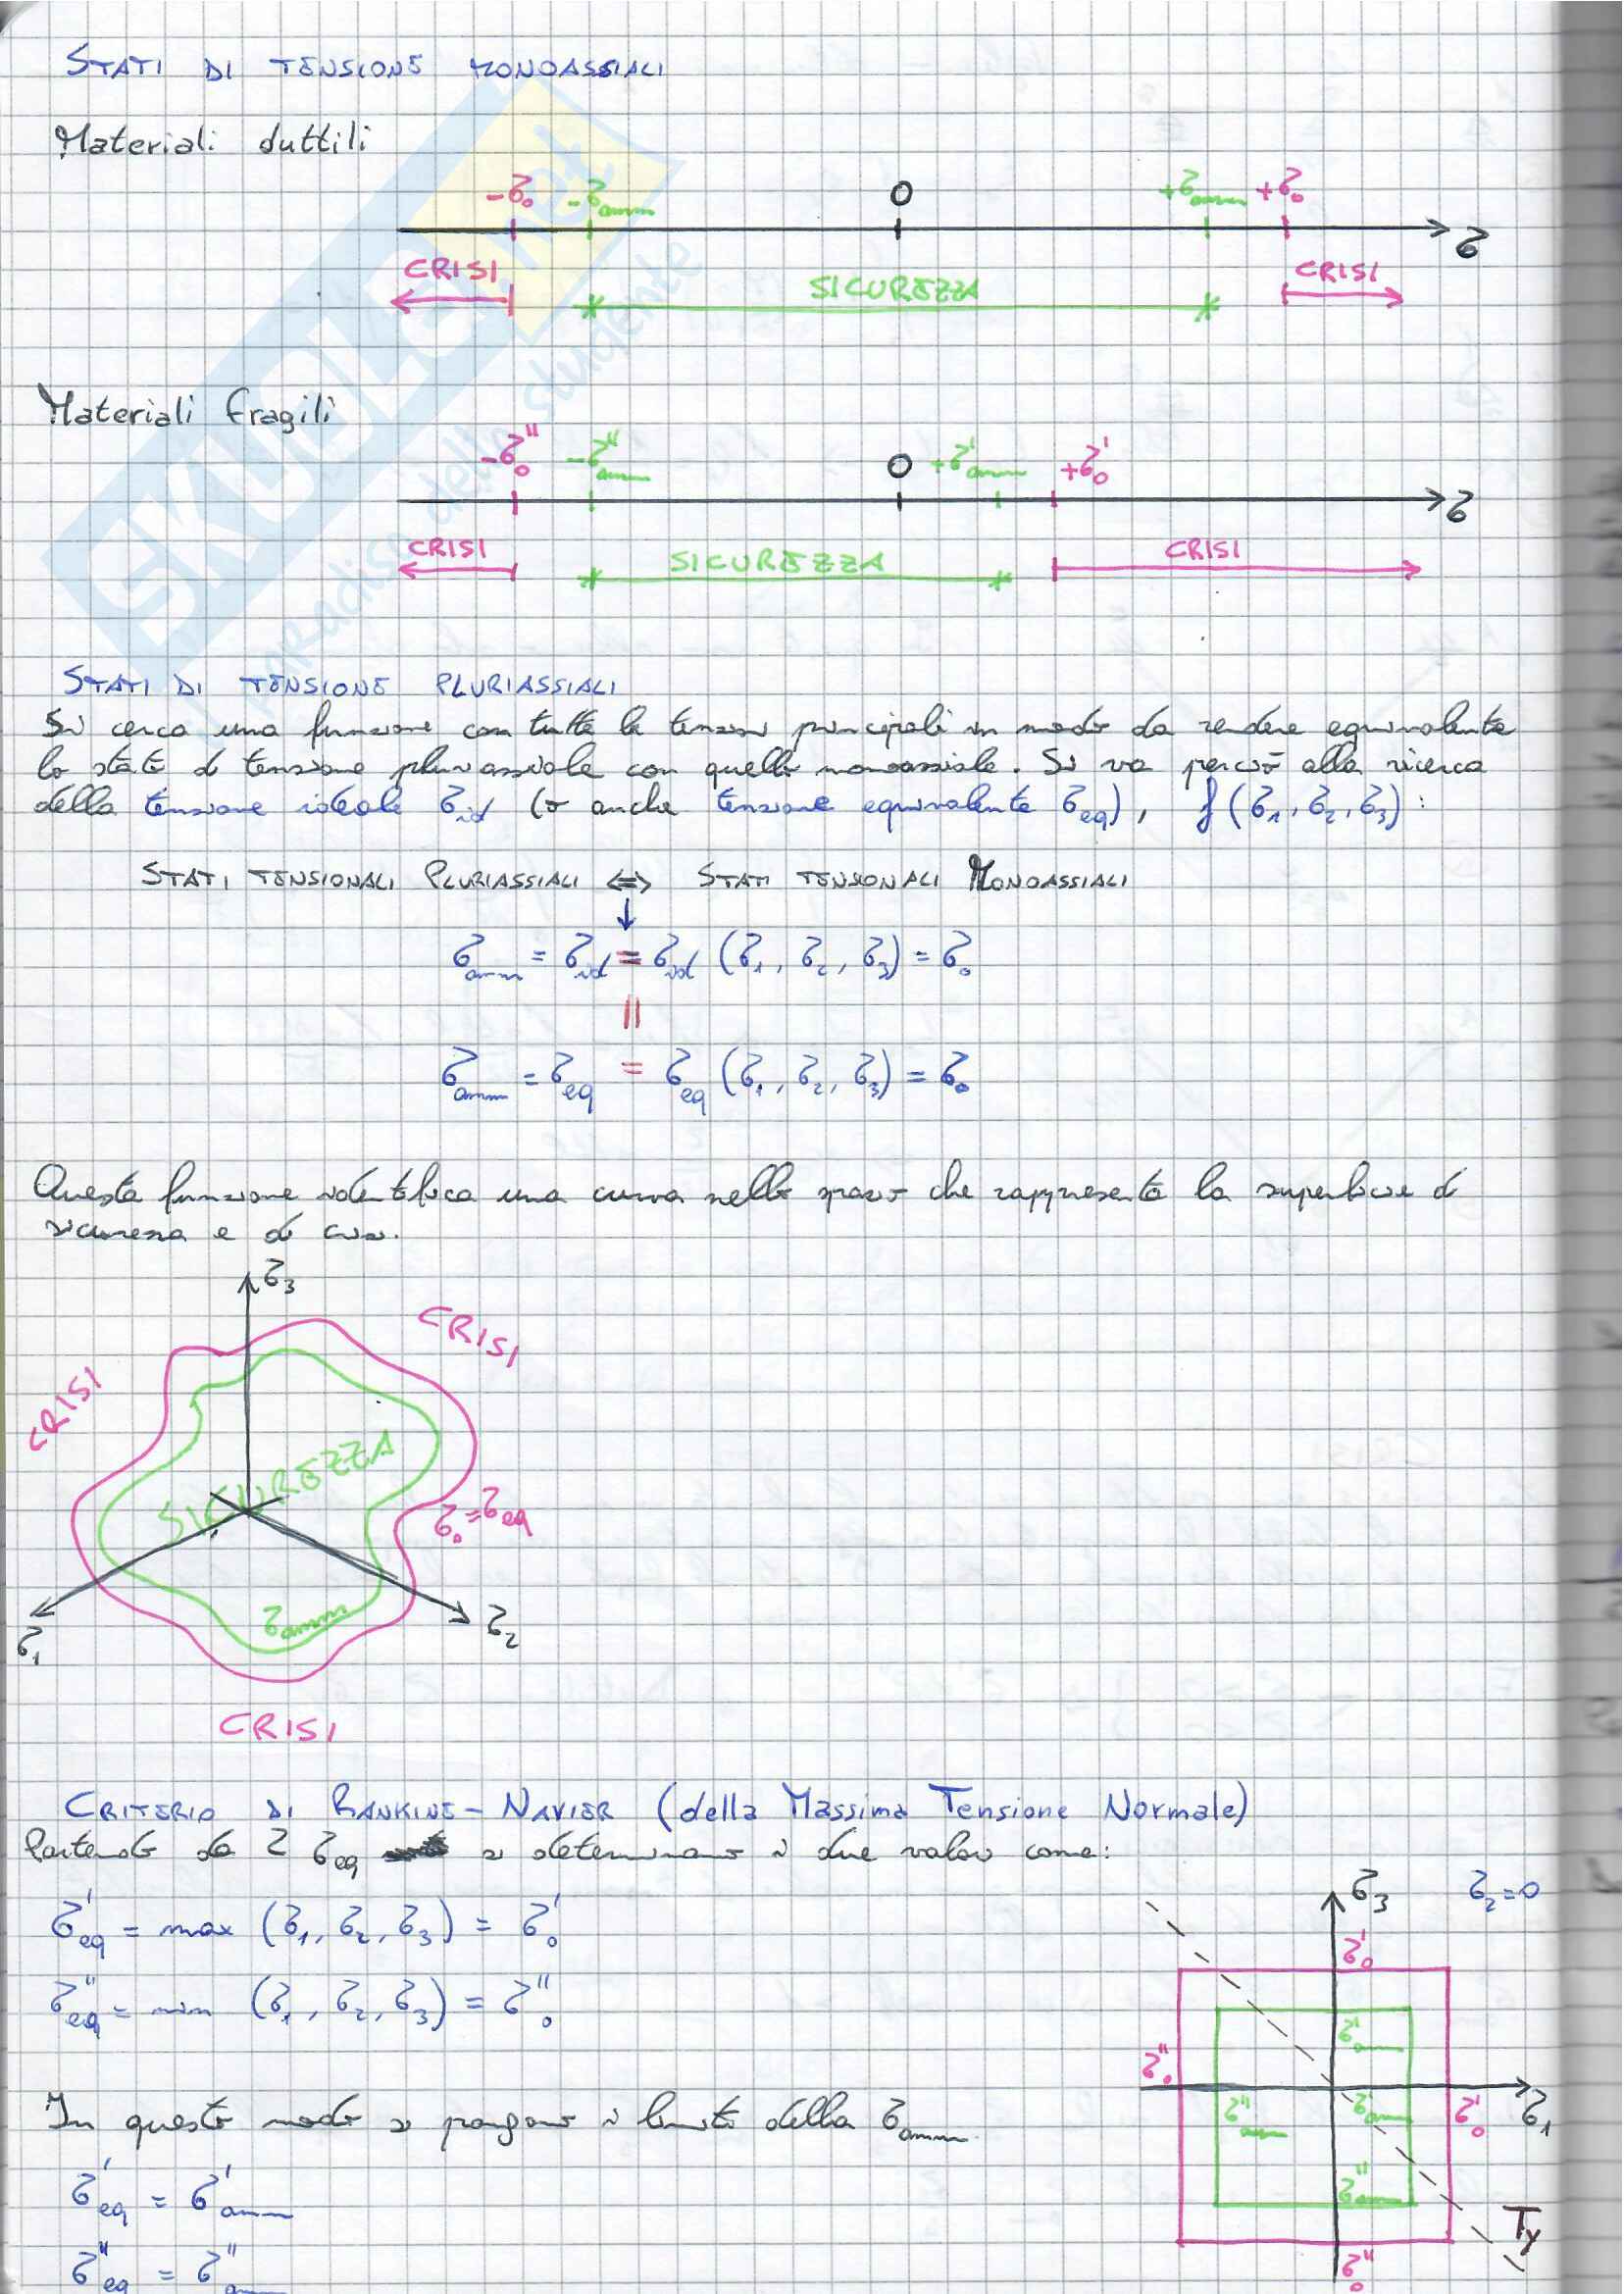 STATI DI TENSIONE MONOASSIALI
Materiali duttili
-σ₀ -σamm 0 +σamm +σ₀
σ
CRISI SICUREZZA CRISI
Materiali fragili
-σ₀'' -σ''amm 0 +σ'amm +σ₀'
σ
CRISI SICUREZZA CRISI
STATI DI TENSIONE PLURIASSIALI
Si cerca una funzione con tutte le tensioni principali in modo da rendere equivalente
lo stato di tensione pluriassiale con quello monoassiale. Si va perciò alla ricerca
della tensione ideale σid (o anche tensione equivalente σeq), f(σ₁, σ₂, σ₃):
STATI TENSIONALI PLURIASSIALI ⇔ STATI TENSIONALI MONOASSIALI
↓
σamm = σid = σid (σ₁, σ₂, σ₃) = σ₀
||
σamm = σeq = σeq (σ₁, σ₂, σ₃) = σ₀
Questa funzione identifica una curva nello spazio che rappresenta la superficie di
sicurezza e di crisi.
σ₃
CRISI
CRISI
SICUREZZA
σ₀ = σeq
σamm
σ₁
σ₂
CRISI
CRITERIO DI RANKINE-NAVIER (della Massima Tensione Normale)
Partendo da 2 σeq si determinano i due valori come:
σ'eq = max (σ₁, σ₂, σ₃) = σ₀'
σ''eq = min (σ₁, σ₂, σ₃) = σ₀''
In questo modo si pongono i limiti della σamm
σ'eq = σ'amm
σ''eq = σ''amm
σ₃ σ₂=0
σ₀'
σ'amm
σ₀''
σ''amm σ'amm σ₀' σ₁
σ''amm
Ty
σ₀''
SKUOLA.net
paradiso dello studente